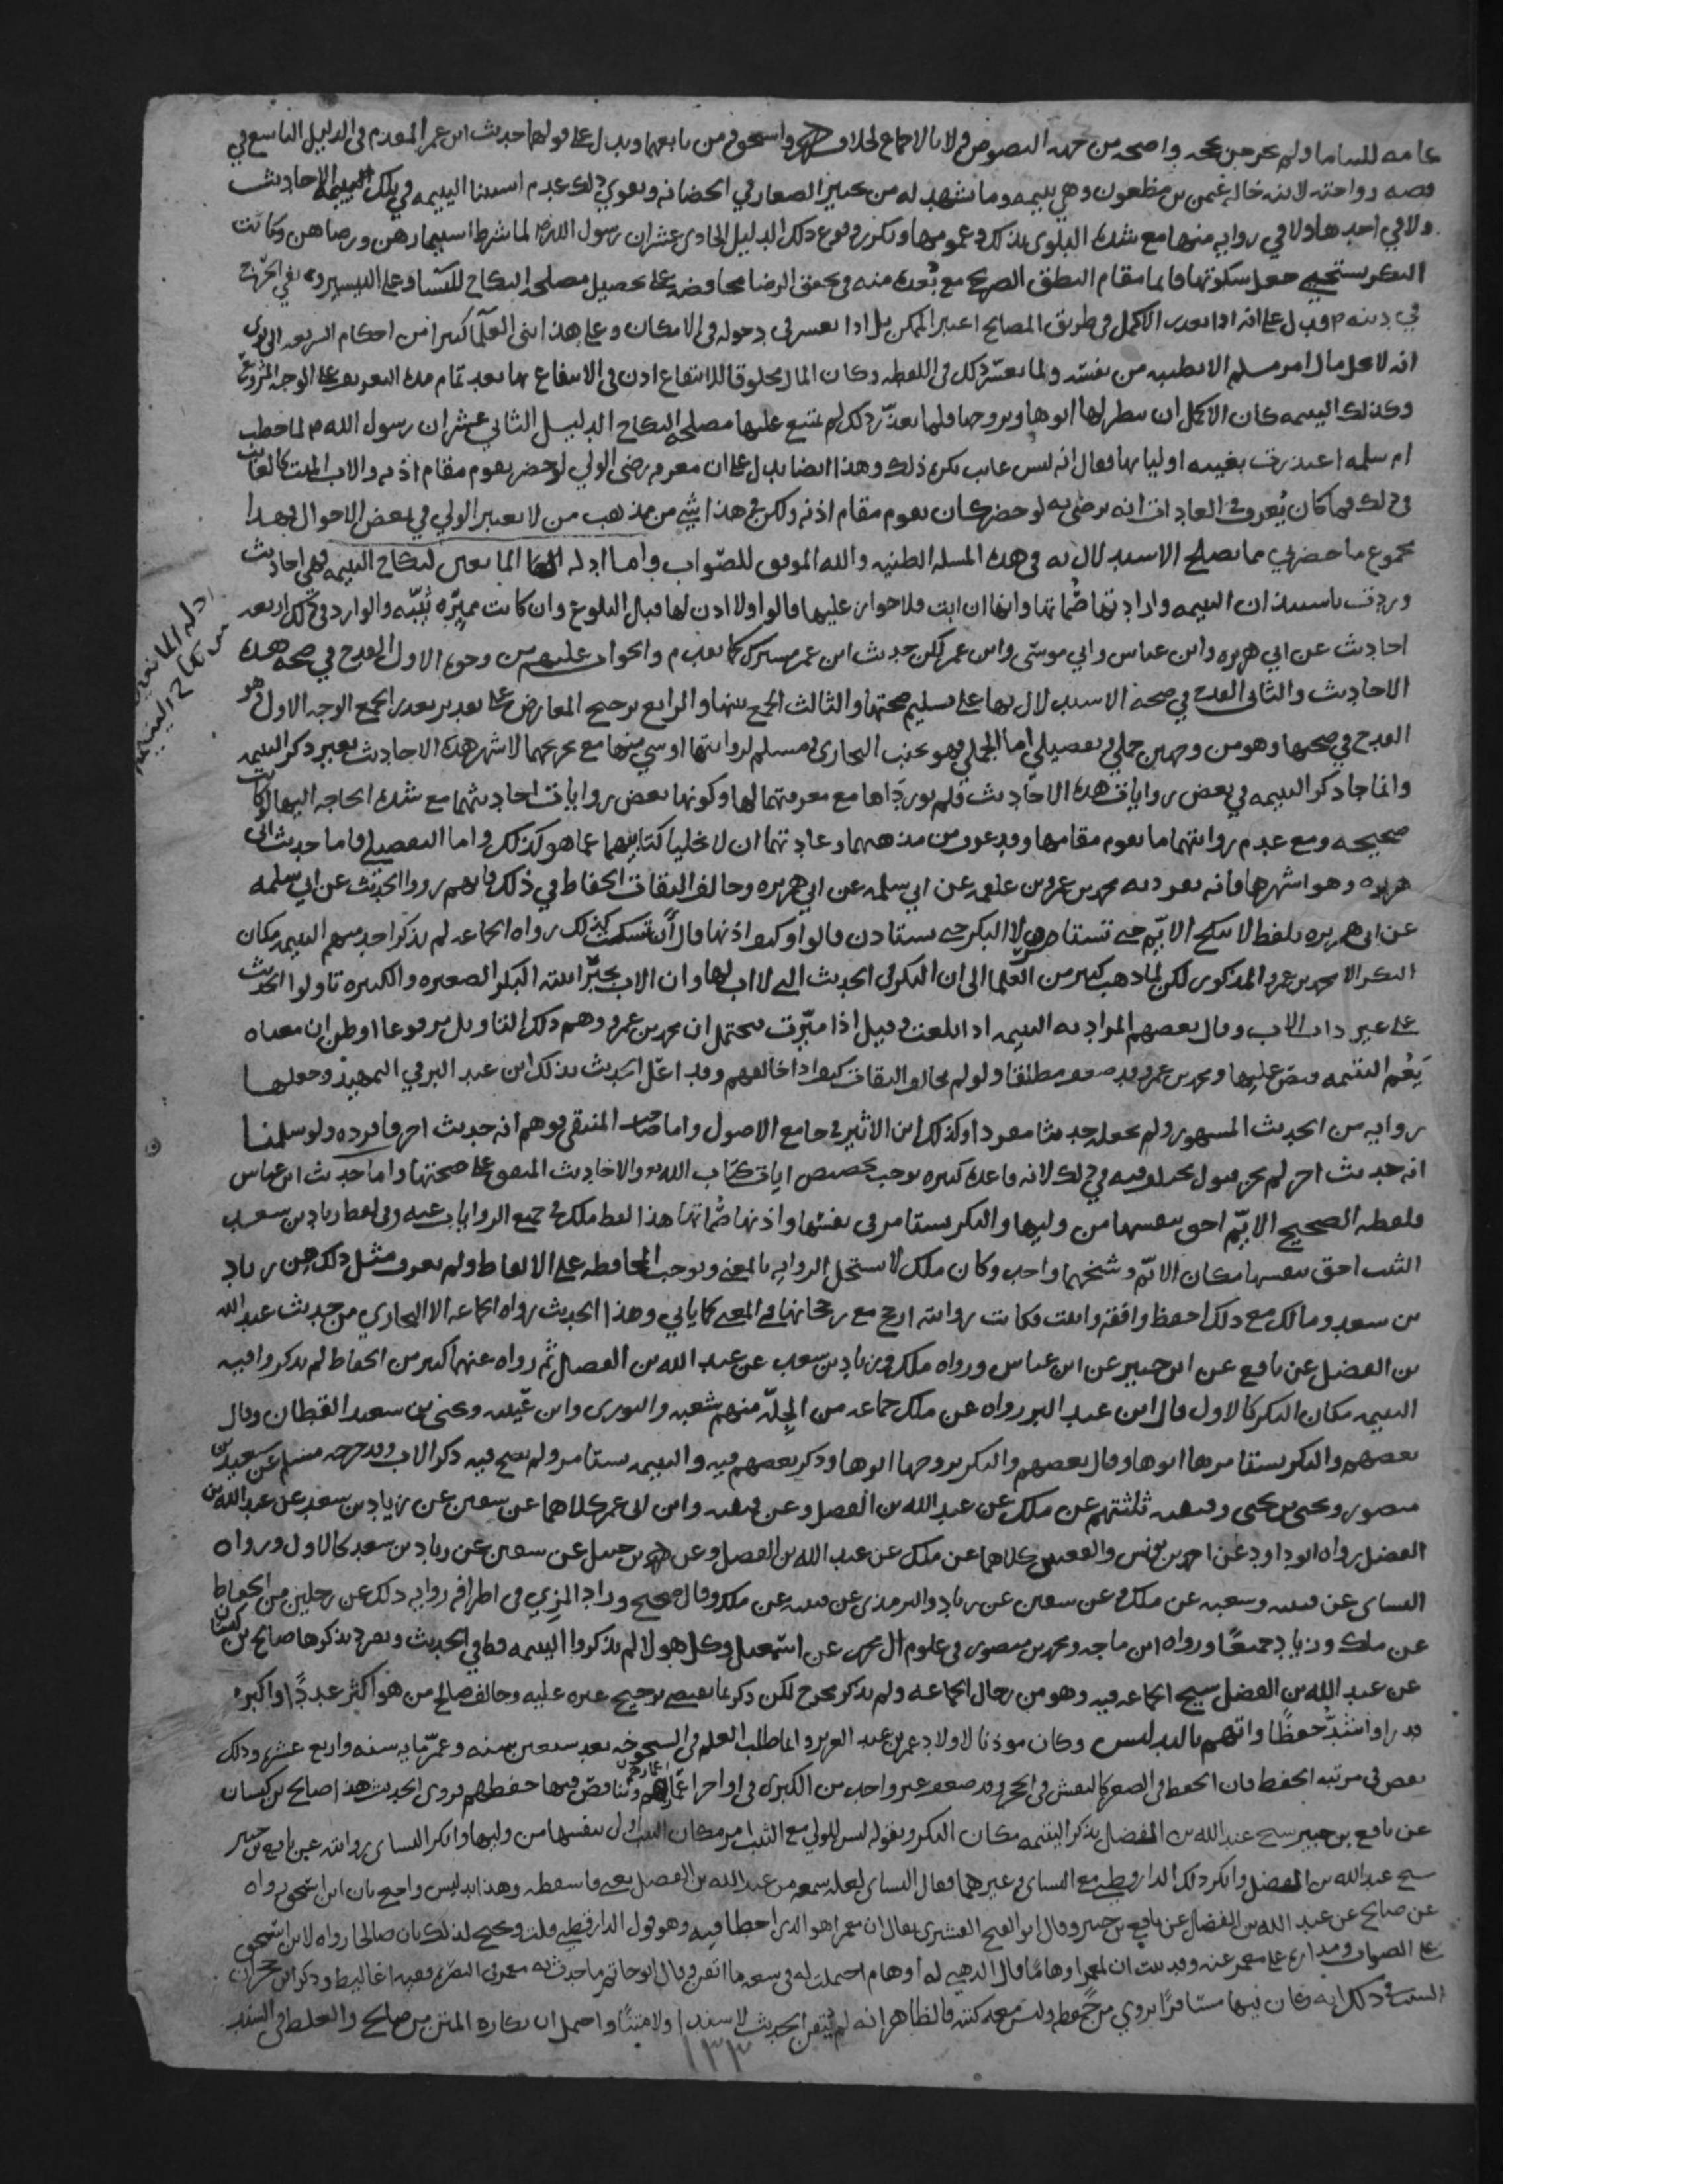 عامه للنساما ولم يخرجن بحجه واضحه من جهه النصوص ولا بالاجماع لخلاف احمد واسحق ومن تابعهما ويدل على قولهما حديث ابن عمر المقدم في الدليل التاسع في
قصه زواجته لابنه خاله عثمن بن مظعون وهي يتيمه وما تشهد له من تخيير الصغار في الحضانه ويقوي ذلك عدم استثنا اليتيمه في تلك الاحاديث
ولا في احدها ولا في روايه منها مع شده البلوى بذلك وعمومها وتكرر وقوع ذلك الدليل الحادي عشر ان رسول الله لما شرط استيمارهن ورضاهن وكانت
البكر تستحيي جعل سكوتها قايما مقام النطق الصريح مع بُعده منه في تحقق الرضا محافضه على تحصيل مصلحه النكاح للنسا وعلى التيسير ونفي الحرج
في دينه فدل على انه اذا تعذر الاكمل في طريق المصالح اعتبر الممكن بل اذا تعسر في دخوله في الامكان وعلى هذا بنى العلما كثيرا من احكام الشريعه الا ترى
انه لا يحل مال امر مسلم الا بطيبه من نفسه ولما تعسّر ذلك في اللقطه وكان المال مخلوقا للانتفاع اذن في الانتفاع بها بعد تمام مده التعريف على الوجه المشروع
وكذلك اليتيمه كان الاكمل ان ينظر لها ابوها ويزوجها فلما تعذّر ذلك لم تمنع عليها مصلحه النكاح الدليل الثاني عشر ان رسول الله لما خطب
ام سلمه اعتذرت بغيبه اوليايها فقال انه ليس غايب يكره ذلك وهذا ايضا يدل على ان معرفه رضى الولي لو حضر يقوم مقام اذنه والاب الميت كالغايب
في ذلك فما كان يُعرف في العادات انه يرضى به لو حضر كان يقوم مقام اذنه ولكن في هذا شي من مذهب من لا يعتبر الولي في بعض الاحوال فهذا
مجموع ما حضرني مما يصلح الاستدلال به في هذه المسله الظنيه والله الموفق للصّواب واما ادله المانعين لنكاح اليتيمه فهي احاديث
وردت باستيذان اليتيمه وارادتها صُماتها وانها ان ابت فلا جواز عليها قالوا ولا اذن لها قبال البلوغ وان كانت مميّزه ثيّبه والوارد في ذلك اربعه
ادله المانعين
من نكاح اليتيمه
احاديث عن ابي هريره وابن عباس وابي موسى وابن عمر لكن حديث ابن عمر مشترك كما تقدم والجواب عليهم من وجوه الاول القدح في صحه هذه
الاحاديث والثاني القدح في صحه الاستدلال بها على تسليم صحتها والثالث الجمع بينها والرابع ترجيح المعارض على تقدير تعذر الجمع الوجه الاول وهو
القدح في صحتها وهو من وجهين جملي وتفصيلي اما الجملي فهو تجنب البخاري ومسلم لروايتها او شي منها مع تخريجهما لاشهر هذه الاحاديث بغير ذكر اليتيمه
وانما جا ذكر اليتيمه في بعض روايات هذه الاحاديث فلم يوردَاها مع معرفتهما لها وكونها بعض روايات احاديثهما مع شده الحاجه اليها لو كانت
صحيحه ومع عدم روايتهما ما يقوم مقامها وقد عرف من مذهبهما وعادتهما ان لا يخليا كتابيهما عما هو كذلك واما التفصيلي فاما حديث ابي
هريره وهو اشهرها فانه تفرد به محمد بن عمرو بن علقمه عن ابي سلمه عن ابي هريره وخالف الثقات الحفاظ في ذلك فانهم رووا الحديث عن ابي سلمه
عن ابي هريره بلفظ لا تنكح الايّم حتى تستامر ولا البكر حتى تستاذن قالوا وكيف اذنها قال أن تسكت كذلك رواه الجماعه لم يذكر احد منهم اليتيمه مكان
البكر الا محمد بن عمرو المذكور لكن لما ذهب كثير من العلما الى ان البكر في الحديث التي لا اب لها وان الاب يجبّر ابنته البكر الصغيره والكبيره تاولوا الحديث
على غير ذات الاب وقال بعضهم المراد به اليتيمه اذا بلغت وقيل اذا ميّزت فيحتمل ان محمد بن عمرو وهم ذلك التاويل مرفوعا او ظن ان معناه
يَعُم اليتيمه فنص عليها ومحمد بن عمرو قد ضعف مطلقا ولو لم يخالف الثقات كيف اذا خالفهم وقد اعّل الحديث بذلك ابن عبد البر في التمهيد وجعلها
روايه من الحديث المشهور ولم يجعله حديثا مفردا وكذلك ابن الاثير في جامع الاصول واما صاحب المنتقى فوهم انه حديث اخر فافرده ولو سلمنا
انه حديث اخر لم يجز قبول مختلف فيه في ذلك لانه قاعده كبيره توجب تخصيص ايات كتاب الله والاحاديث المتفق على صحتها واما حديث ابن عباس
فلفظه الصحيح الايّم احق بنفسها من وليها والبكر تستامر في نفسها واذنها صُماتها هذا لفظ ملك في جميع الروايات عنه وفي لفظ زياد بن سعد
الثيب احق بنفسها مكان الايّم وشيخهما واحد وكان ملك لا يستحل الروايه بالمعنى ويوجب المحافظه على الالفاظ ولم يعرف مثل ذلك من زياد
بن سعد ومالك مع ذلك احفظ وافقه واثبت فكانت روايته ارجح مع رجحانها في المعنى كما ياتي وهذا الحديث رواه الجماعه الا البخاري من حديث عبد الله
بن الفضل عن نافع عن ابن جبير عن ابن عباس ورواه ملك وزياد بن سعد عن عبد الله بن الفضل ثم رواه عنهما كثير من الحفاظ لم يذكروا فيه
اليتيمه مكان البكر كالاول قال ابن عبد البر رواه عن ملك جماعه من الجلّه منهم شعبه والثوري وابن عيينه ويحيى بن سعيد القطان وقال
بعضهم والبكر يستامرها ابوها وقال بعضهم والبكر يزوجها ابوها وذكر بعضهم فيه واليتيمه تستامر ولم يصح فيه ذكر الاب وقد خرجه مسلم عن سعيد بن
منصور ويحيى بن يحيى وقتيبه ثلثتهم عن ملك عن عبد الله بن الفضل وعن قتيبه وابن ابي عمر كلاهما عن سفين عن زياد بن سعد عن عبد الله بن
الفضل رواه ابو داود عن احمد بن يونس والقعنبي كلاهما عن ملك عن عبد الله بن الفضل وعن احمد بن حنبل عن سفين عن زياد بن سعد كالاول ورواه
النساي عن قتيبه وشعبه عن ملك وعن سفين عن زياد والترمذي عن قتيبه عن ملك وقال صحيح وزاد المزي في اطرافه روايه ذلك عن رجلين من الحفاظ
عن ملك وزياد جميعًا ورواه ابن ماجه ومحمد بن منصور في علوم ال محمد عن اسمعيل وكل هولا لم يذكروا اليتيمه قط في الحديث وتفرد بذكرها صالح بن كيسان
عن عبد الله بن الفضل شيخ الجماعه فيه وهو من رجال الجماعه ولم يذكر بجرح لكن ذكر ما يقتضي ترجيح غيره عليه وخالف صالح من هو اكثر عددًا واكبر
قدرا واشدّ حفظًا واتهم بالتدليس وكان مودبا لاولاد عمر بن عبد العزيز وانما طلب العلم في الشيخوخه بعد سبعين سنه وعمّر مايه سنه واربع عشره وذلك
نقص في مرتبه الحفظ فان الحفظ في الصغر كالنقش في الحجر وقد ضعف غير واحد من الكبرى في اواخر اعمارهم وتناقص فيها حفظهم فروى الحديث هذا صالح بن كيسان
عن نافع بن جبير شيخ عبد الله بن الفضل بذكر اليتيمه مكان البكر وبقوله ليس للولي مع الثيب امر مكان الثيب اولى بنفسها من وليها وانكر النساي روايته عن نافع بن جبير
شيخ عبد الله بن الفضل وانكر ذلك الدارقطني مع النساي وغيرهما فقال النساي لعله سمعه من عبد الله بن الفضل يعني فاسقطه وهذا تدليس واضح بان ابن اسحق رواه
عن صالح عن عبد الله بن الفضل عن نافع بن جبير وقال ابو الفتح القشيري يقال ان معمرا هو الذي اخطا فيه وهو قول الدارقطني قلت ويحتج لذلك بان صالحا رواه لابن اسحق
على الصواب ومداره على معمر عنه وقد ثبت ان لمعمر اوهامًا قال الذهبي له أوهام احتملت له في سعه ما اتقن وقال ابو حاتم ما حدث به معمر في البصره فيه اغاليط وذكر ابن حجر ان
السبب في ذلك انه كان فيها مسافرًا يروي من حفظه وليس معه كتبه فالظاهر انه لم يتقن الحديث لا سندا ولا متنًا واحتمل ان نكاره المتن من صالح والغلط في السند
١٣٣